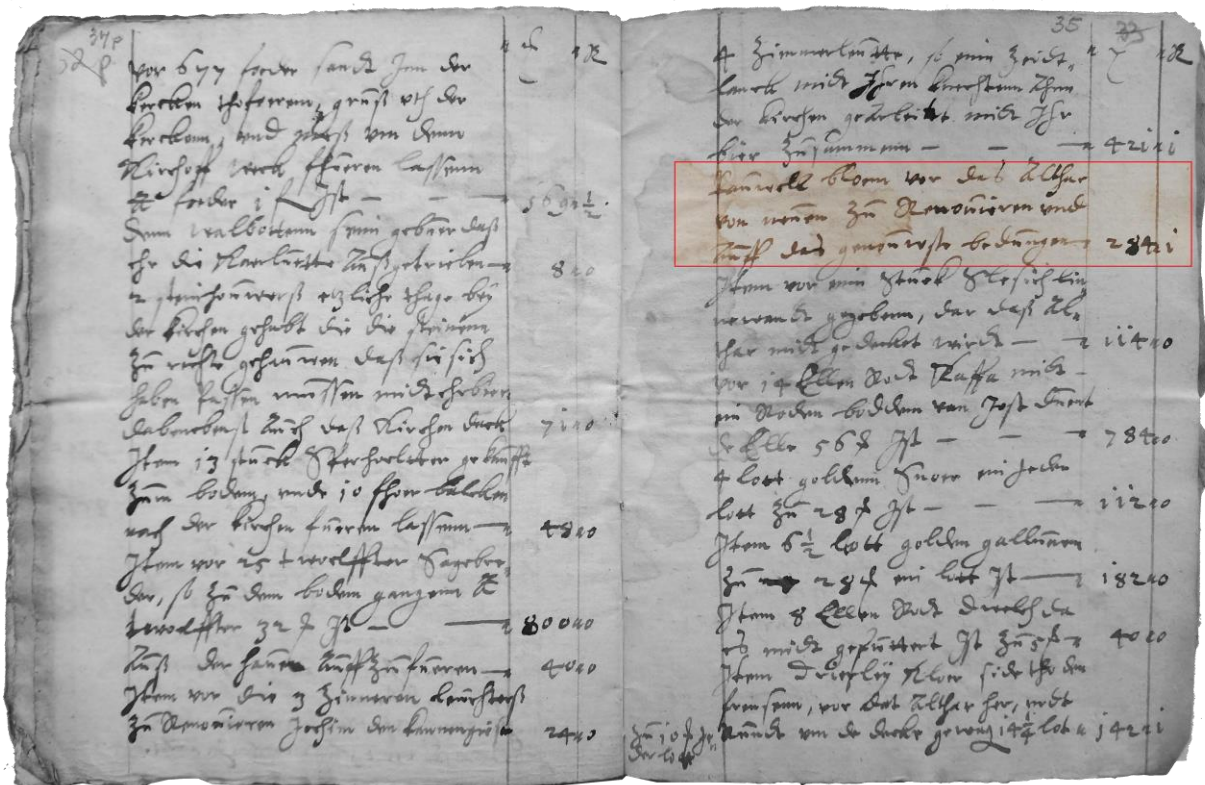 vor 677 foeder sandt Jnn der
kercken thofoerenn, gruß vth der
kerckenn, vnd von denn
Kirchoff weck fhueren lassenn
foeder 1 Jst — — 569 1/2
denn walbottenn seinn gebuer daß
ehr die Karluette Außgetrieben 8 „ 0
2 steinhouwerß etzliche thage bey
der kirchen gehabt die die steinenn
Zu rechte gehauwen daß sie sich
haben lassen mussen midt ehr bier
dabenebenst Auch daß Kirchen dack 71 „ 0
Item 13 stuck Sperholtter gekaufft
Zum bodem, vnde 10 fhoer balcken
nach der kirchen fueren lassenn 48 „ 0
Item vor 25 twelffter Sageboe-
der, so Zu dem bodem gangenn
twelffter 32 Jst — 800 „ 0
Auß der hauen Auff Zu fueren 40 „ 0
Item vor die 3 Zinneren leuchterß
Zu Renouieren Jochim den kannengießer 24 „ 0
35 33
4 Zimmerleutte, so einn Zeidt-
lanck midt Ihren knechtenn Ahnn
der kirchen gearbeitet midt Ihr
bier Zusammenn — — 421 „ 1
Pauwell bloem vor das Althar
von neuen Zu Renouieren vnd
Auff das genouwste bedungen 284 „ 1
Item vor einn Stuck Slesisch lin-
newandt gegebenn, dar daß Al-
thar midt gedecket wirdt — 114 „ 0
vor 14 Ellen Rodt Kaffa midt
ein Roden boddem van Jost
de Elle 56 Jst — — 784 „ 0
4 lott goldenn Snoer ein Jeder
lott Zu 28 Jst — — 112 „ 0
Item 6 1/2 lott golden gallunen
Zu 28 ein lott Jst — 182 „ 0
Item 8 Ellen Rodt da
es midt gefuttert Jst Zu 5 40 „ 0
Item Drierley Kloer side tho den
fransenn, vor dat Althar her, vndt
Rundt vm de decke gewegen 14 1/4 lot 142 „ 1
Zu 10 Je-
der lott